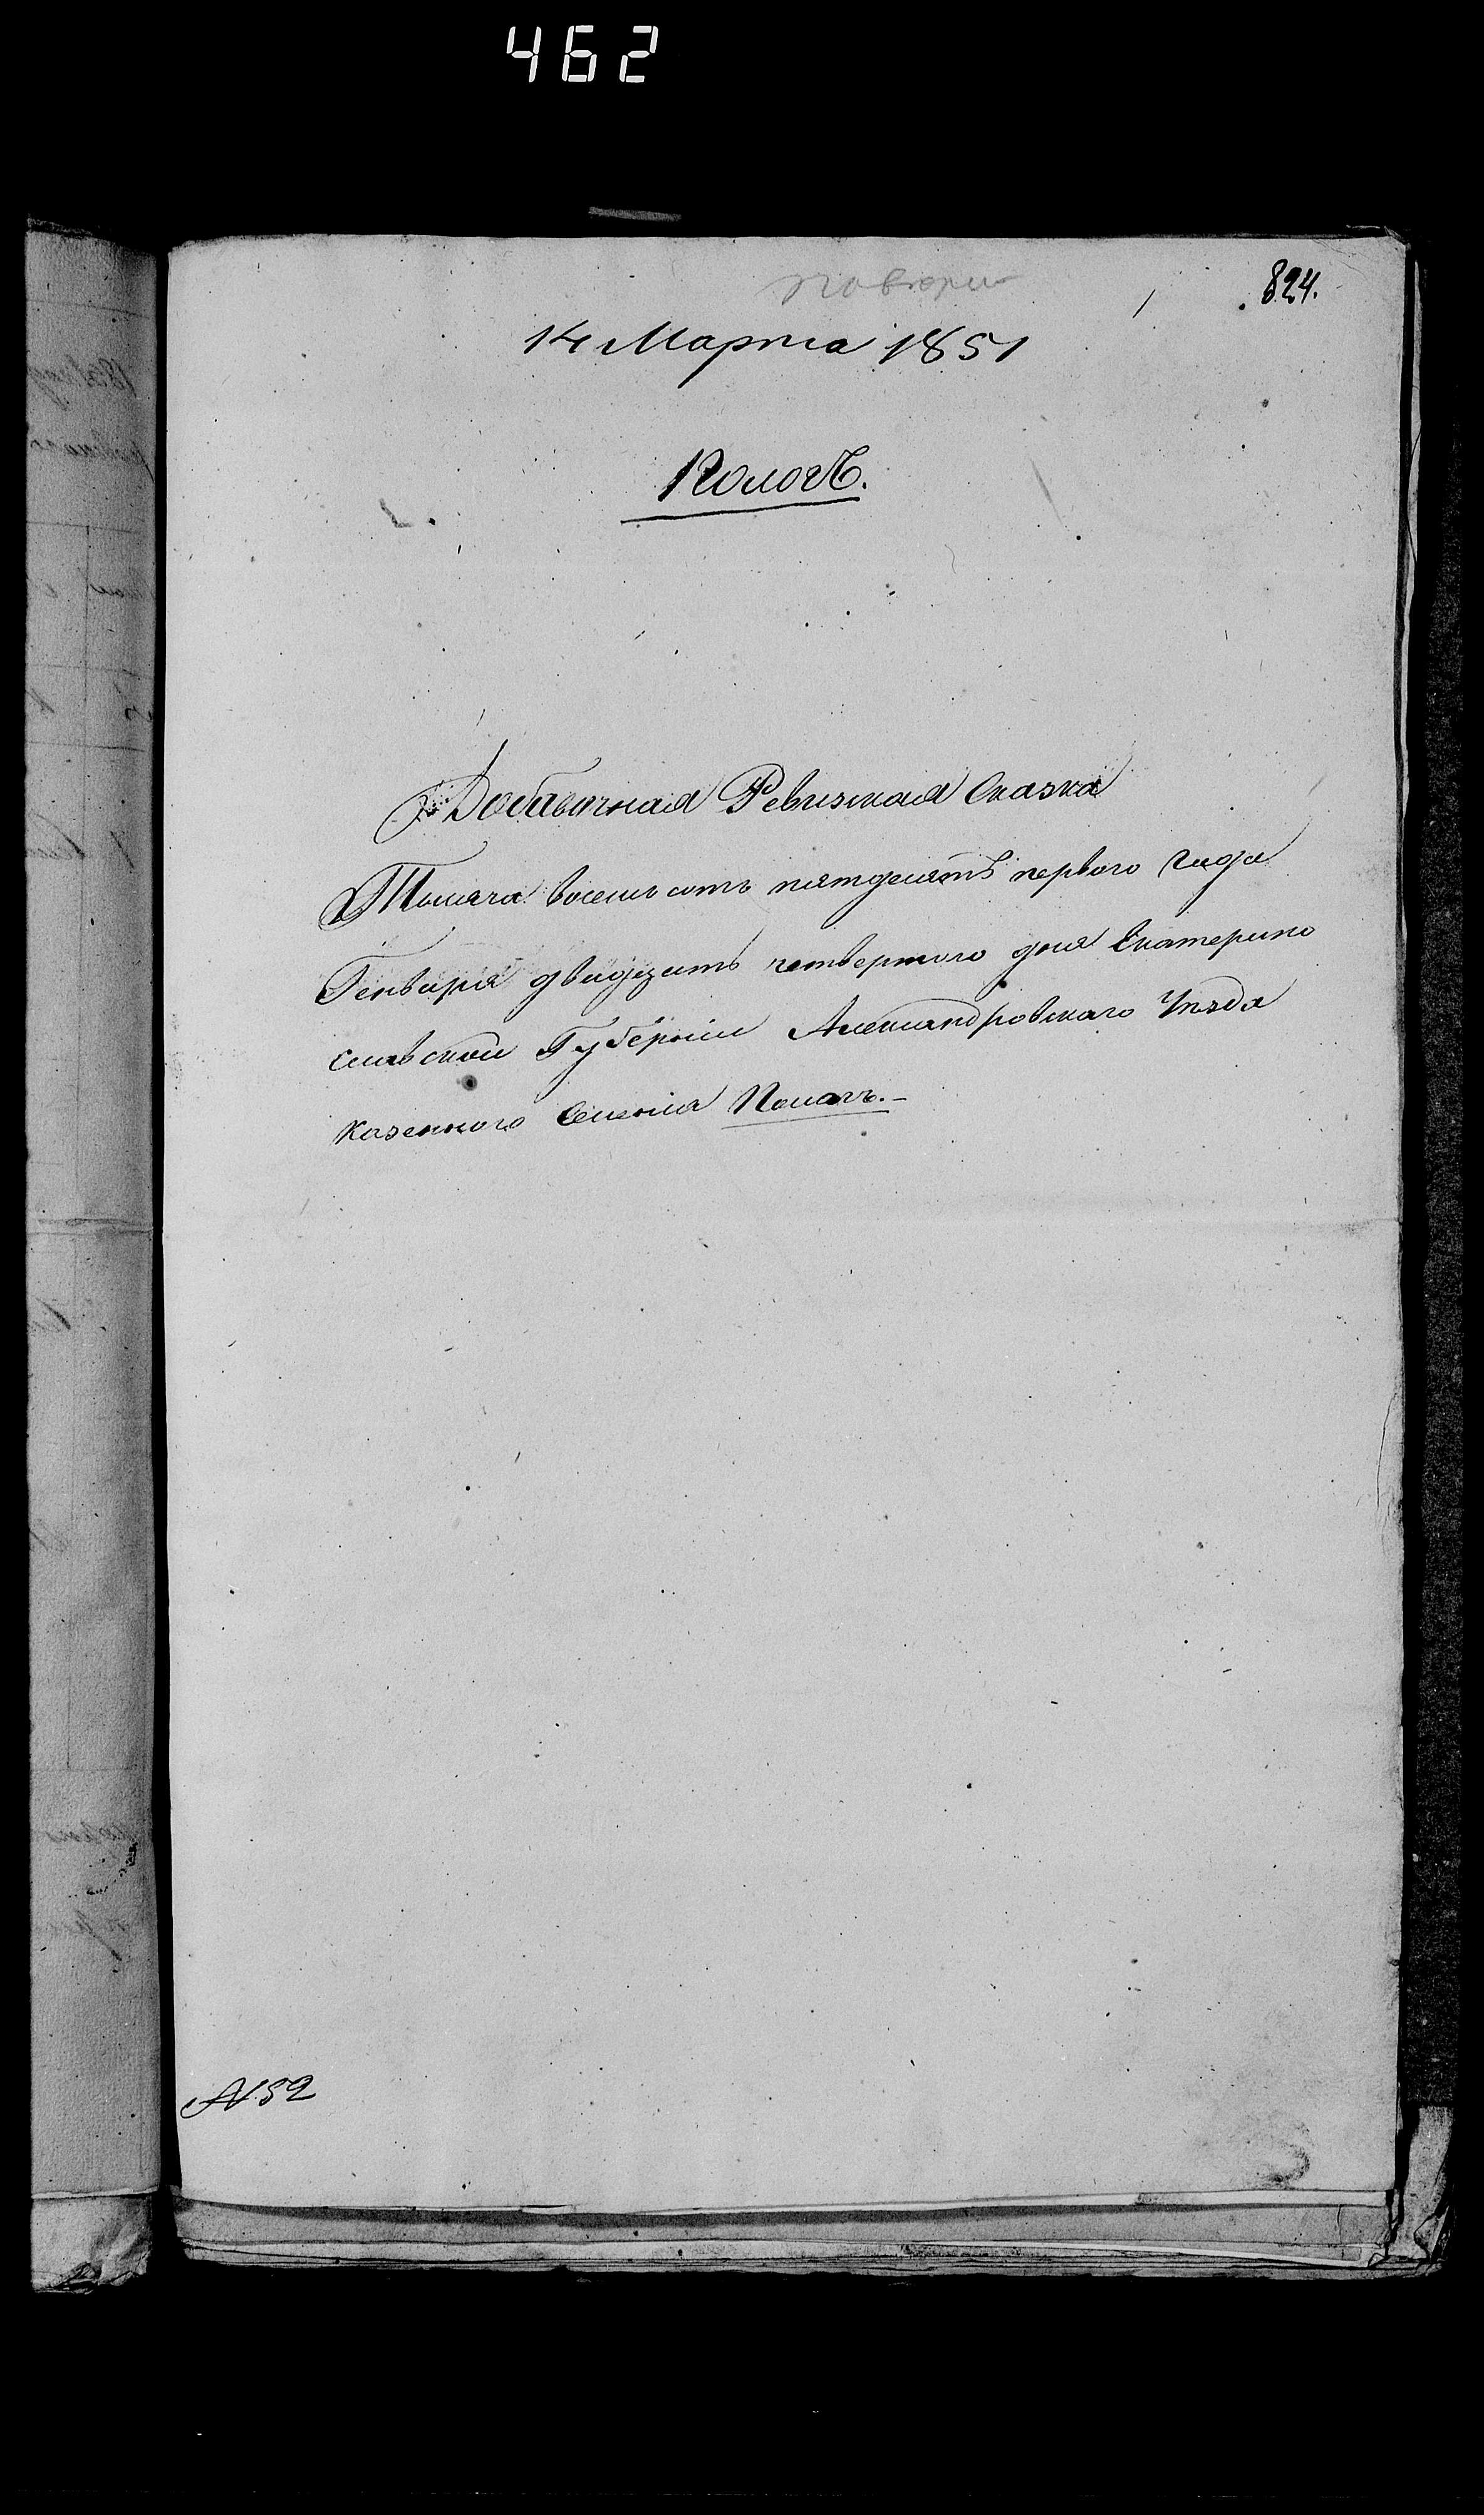 462
824.
14 Марта 1851
Пологъ.
Добавочная Ревизская Сказка
Тысяча восемьсотъ пятдесятъ первого года
Генваря двадцать четвертого дня Екатерино
славской Губерніи Александровскаго Уѣзда
казенного Селенія Пологъ.-
N. 52